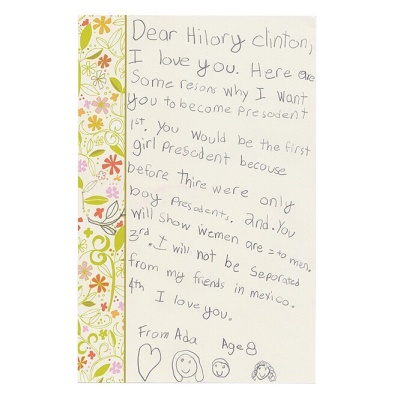 Dear Hilory Clinton,
I love you. Here are
Some resions why I want
you to become Presodent
1st. You would be the first
girl Presodent because
before thire were only
boy Presodents. 2nd. You
will Show women are = to men.
3rd. I will not be Seporated
from my friends in mexico.
4th I love you.
From Ada Age 8